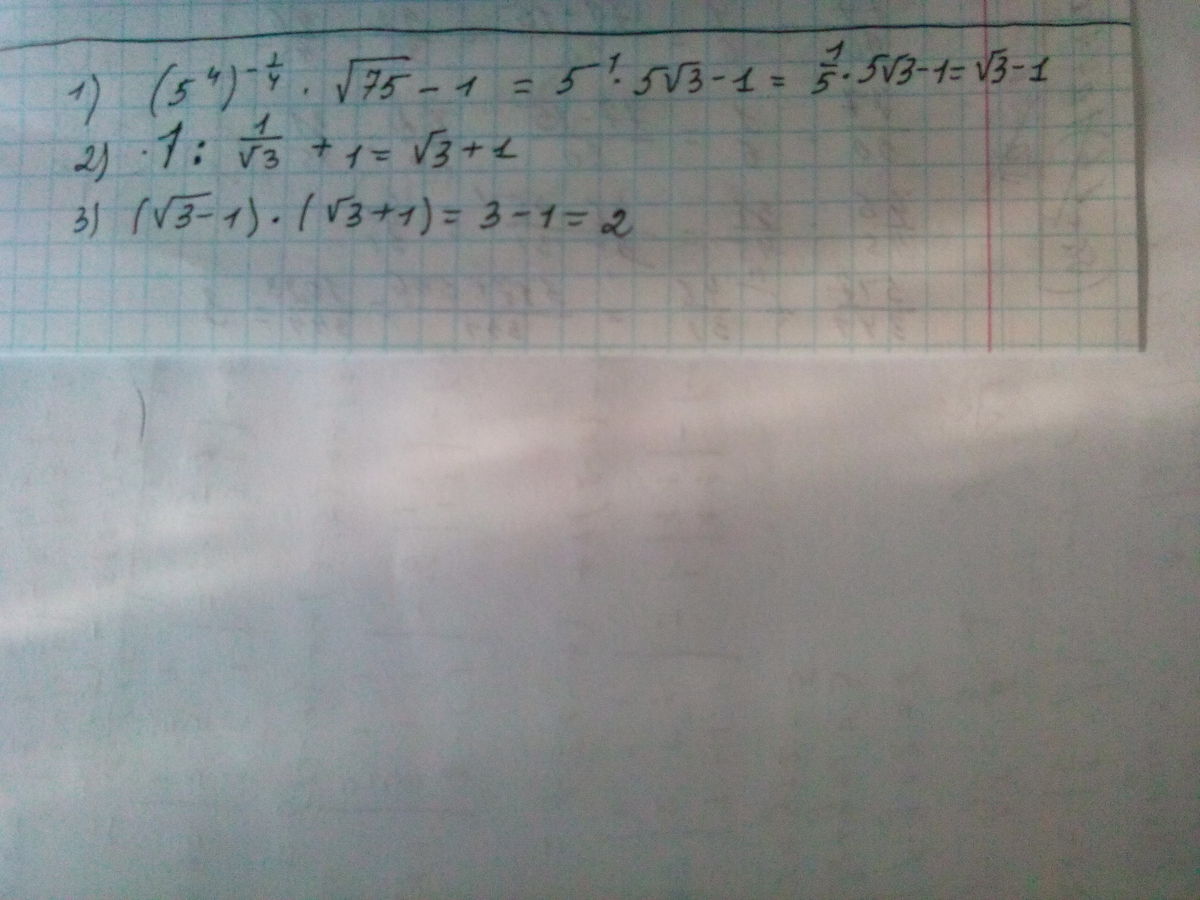 1) (5⁴)^(-1/4) · √75 - 1 = 5⁻¹ · 5√3 - 1 = 1/5 · 5√3 - 1 = √3 - 1
2) · 1 : 1/√3 + 1 = √3 + 1
3) (√3 - 1) · (√3 + 1) = 3 - 1 = 2